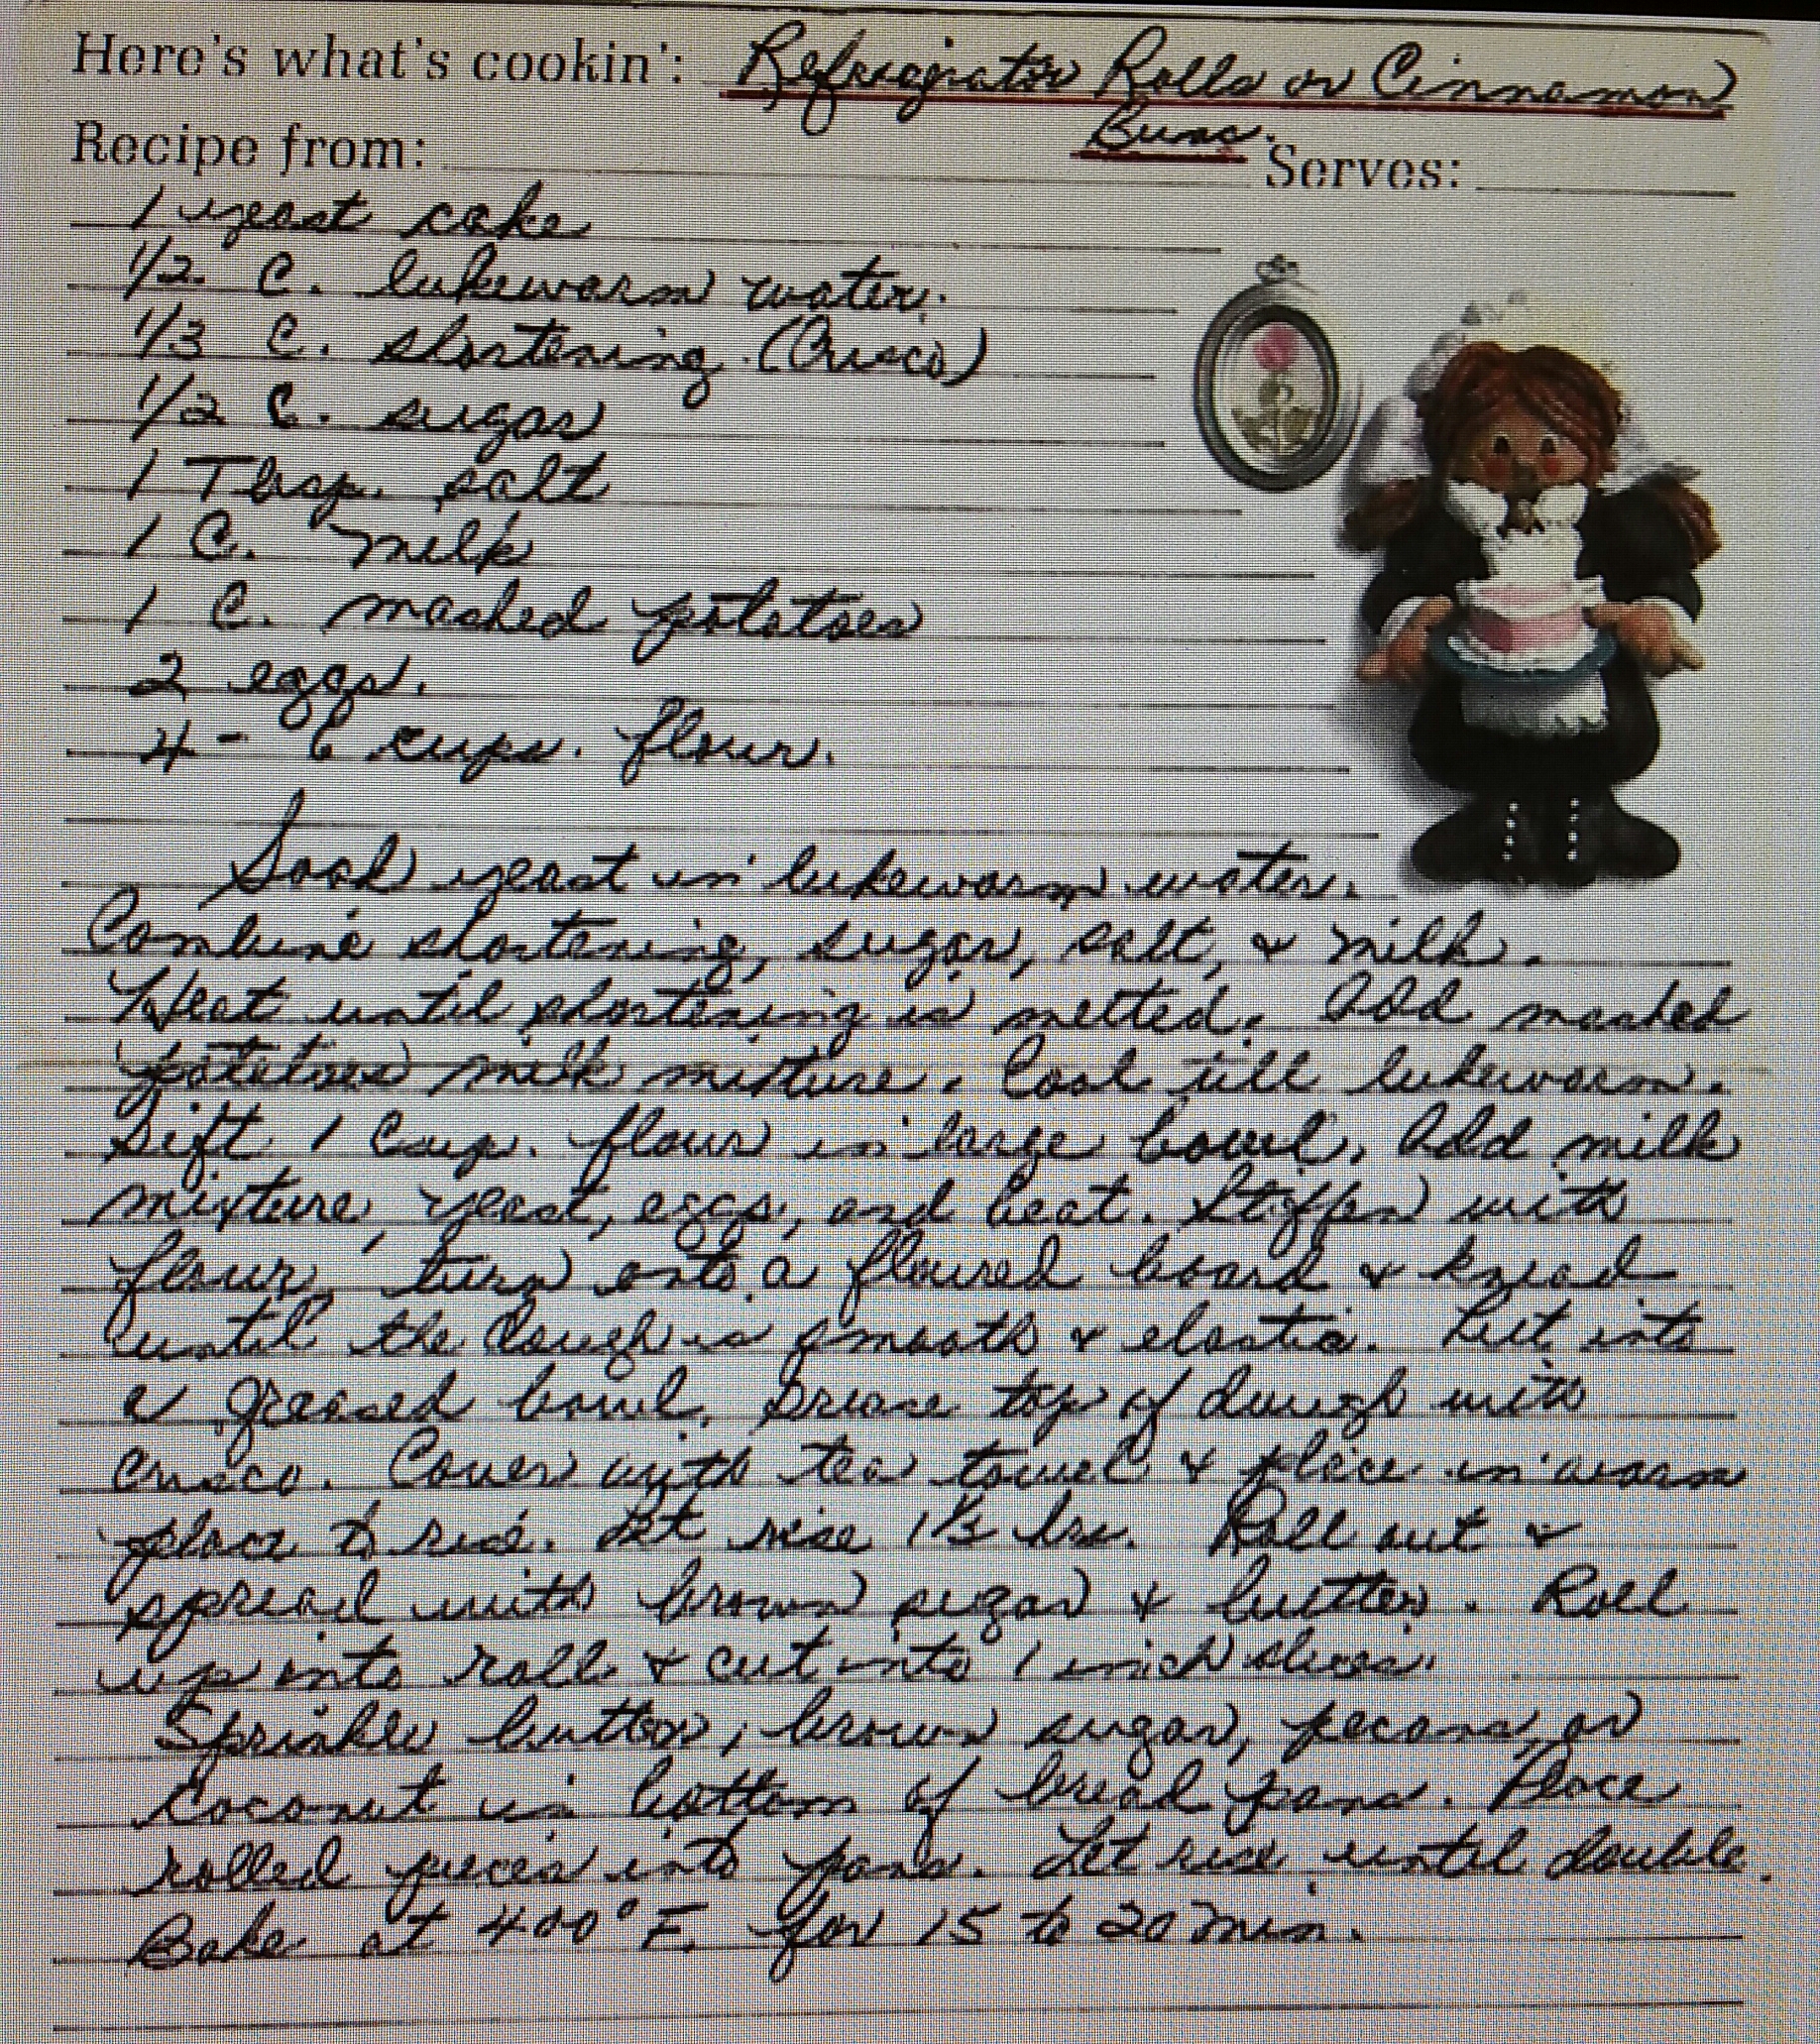 Here's what's cookin': Refrigerator Rolls or Cinnamon
Buns.
Recipe from: Serves:
1 yeast cake
1/2 C. lukewarm water.
1/3 C. shortening (Crisco)
1/2 C. sugar
1 Tbsp. salt
1 C. milk
1 C. mashed potatoes
2 eggs.
4 - 6 cups. flour.
Soak yeast in lukewarm water.
Combine shortening, sugar, salt, & milk.
Heat until shortening is melted. Add mashed
potatoes milk mixture. Cool till lukewarm.
Sift 1 Cup. flour in large bowl, Add milk
mixture, yeast, eggs, and beat. Stiffen with
flour, turn onto a floured board & knead
until the dough is smooth & elastic. Put into
a greased bowl, Grease top of dough with
crisco. Cover with tea towel & place in warm
place to rise. Let rise 1½ hrs. Roll out &
spread with brown sugar & butter. Roll
up into roll & cut into 1 inch slices.
Sprinkle butter, brown sugar, pecans, or
Coconut in bottom of bread pans. Place
rolled pieces into pans. Let rise until double.
Bake at 400° F. for 15 to 20 min.